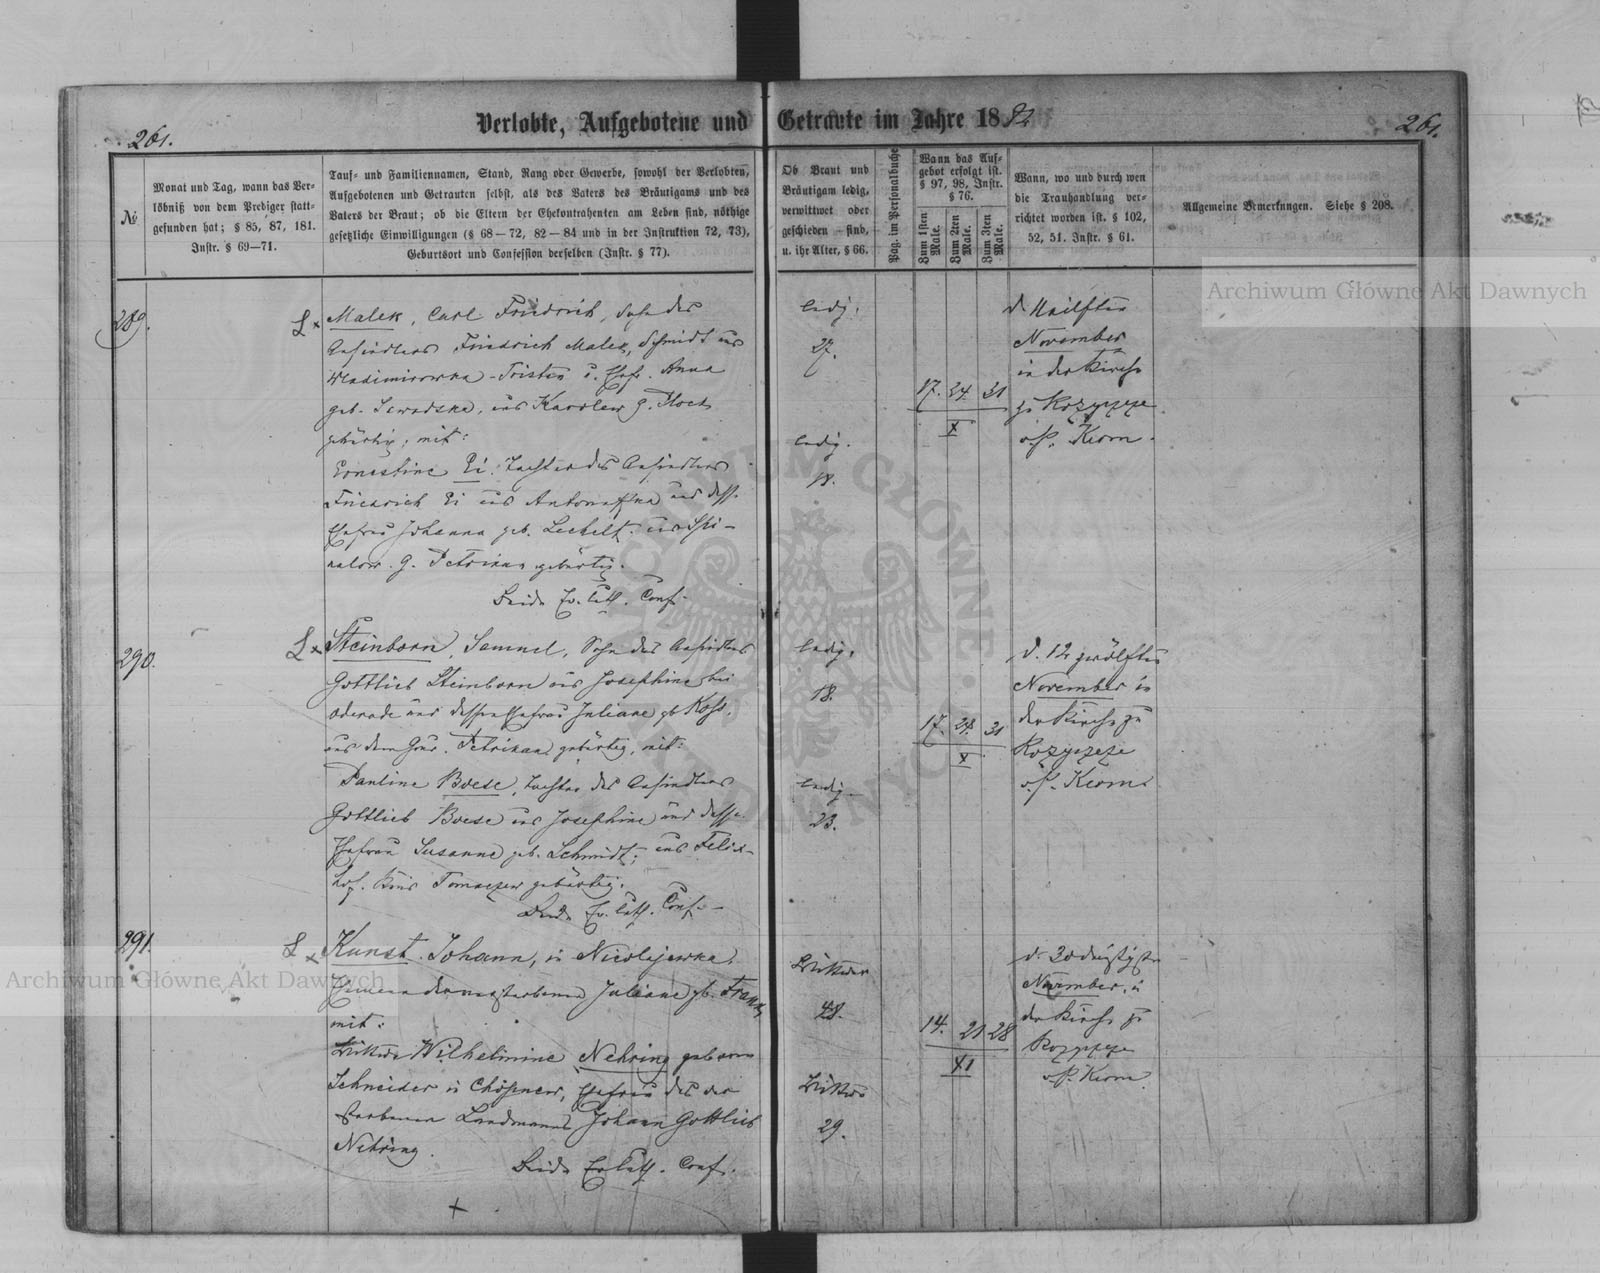 Verlobte, Aufgebotene und Getraute im Jahre 1882
261.
261.
№
Monat und Tag, wann das Ver-
löbniß von dem Prediger statt-
gefunden hat; § 85, 87, 181.
Instr. § 69—71.
Tauf- und Familiennamen, Stand, Rang oder Gewerbe, sowohl der Verlobten,
Aufgebotenen und Getrauten selbst, als des Vaters des Bräutigams und des
Vaters der Braut; ob die Eltern der Ehekontrahenten am Leben sind, nöthige
gesetzliche Einwilligungen (§ 68—72, 82—84 und in der Instruktion 72, 73),
Geburtsort und Confession derselben (Instr. § 77).
Ob Braut und
Bräutigam ledig,
verwittwet oder
geschieden sind,
u. ihr Alter, § 66.
Pag. im Personalbuche
Wann das Auf-
gebot erfolgt ist.
§ 97, 98, Instr.
§ 76.
Zum 1sten Male.
Zum 2ten Male.
Zum 3ten Male.
Wann, wo und durch wen
die Trauhandlung ver-
richtet worden ist. § 102,
52, 51. Instr. § 61.
Allgemeine Bemerkungen. Siehe § 208.
289.
Malek, Carl Friedrich, Sohn des
Ansiedlers Friedrich Malek, Schmidt aus
Wladimirowka-Tristen u. Ehefr. Anna
geb. aus Karolew g. Plock
gebürtig, mit:
Ernestine Ei, Tochter des Ansiedlers
Friedrich Ei aus und dess.
Ehefrau Johanna geb. Lechelt, aus Spi-
nalow. g. Petrikau gebürtig.
Beide Ev. Luth. Conf.
ledig.
27.
ledig.
18.
17. 24. 31
X
d. Eilften
November
in der Kirche
zu Rozyszcze
v. P. Kerm.
290.
Steinborn, Samuel, Sohn des Ansiedlers
Gottlieb Steinborn aus Josephine bei
und dessen Ehefrau Juliane gb. Koss,
aus dem Gouv. Petrikau gebürtig, mit:
Pauline Boese, Tochter des Ansiedlers
Gottlieb Boese aus Josephine und dess.
Ehefrau Susanne geb. Schmidt, aus Felix-
hof. Kreis Tomaszew gebürtig.
Beide Ev. Luth. Conf.
ledig.
18.
ledig.
23.
17. 24. 31
X
d. 12 zwölften
November in
der Kirche zu
Rozyszcze
v. P. Kerm.
291.
Kunst Johann, in Nicolajewka,
der verstorbenen Juliane gb. Frank,
mit:
Wittwe Wilhelmine Nehring geborne
Schneider in Ehefrau des ver
storbenen Landmanns Johann Gottlieb
Nehring.
Beide Ev. Luth. Conf.
Wittwer
48.
Wittwe
29.
14. 21 28
XI
d. 30 dreißigsten
November, in
der Kirche zu
Rozyszcze
v. P. Kerm.
Archiwum Główne Akt Dawnych
Archiwum Główne Akt Dawnych
ARCHIWUM GŁÓWNE AKT DAWNYCH